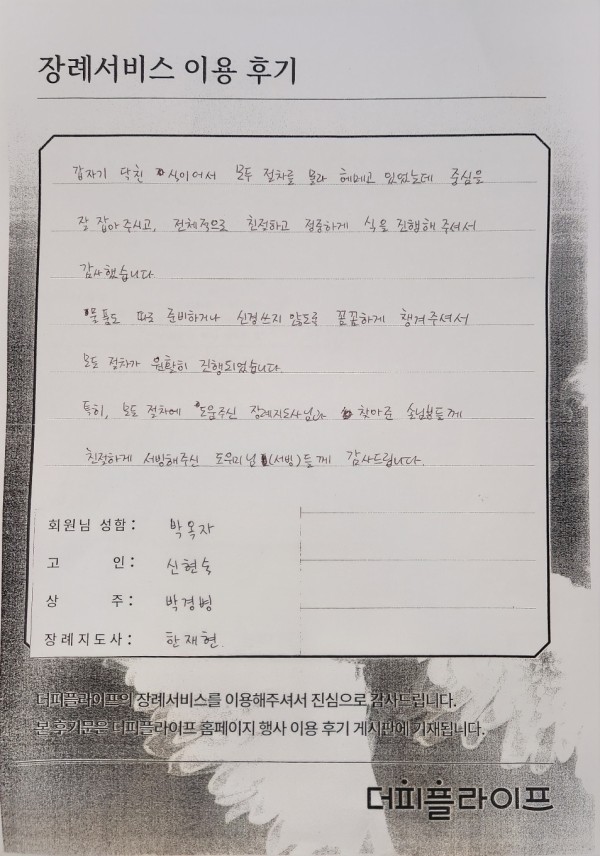 장례서비스 이용 후기
갑자기 닥친 식이어서 모두 절차를 몰라 헤메고 있었는데 중심을
잘 잡아 주시고, 전체적으로 친절하고 정중하게 식을 진행해 주셔서
감사했습니다
물품도 따로 준비하거나 신경쓰지 않도록 꼼꼼하게 챙겨주셔서
모든 절차가 원활히 진행되었습니다.
특히, 모든 절차에 도움주신 장례지도사님과 찾아준 손님분들께
친절하게 서빙해주신 도우미님(서빙)들께 감사드립니다.
회원님 성함: 박옥자
고 인: 신현숙
상 주: 박경병
장례지도사: 한재현
더피플라이프의 장례서비스를 이용해주셔서 진심으로 감사드립니다.
본 후기문은 더피플라이프 홈페이지 행사 이용 후기 게시판에 기재됩니다.
더피플라이프